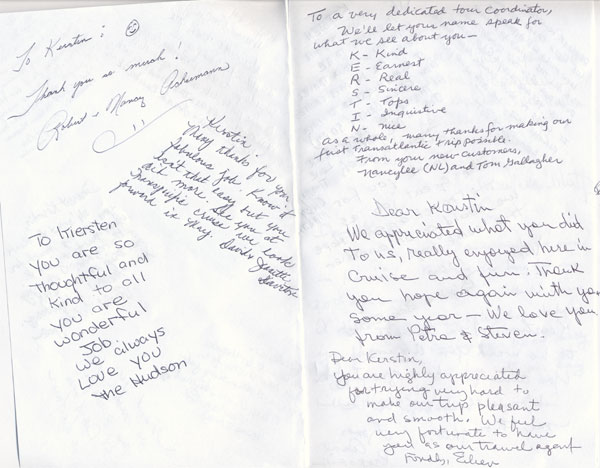 To Kerstin : ☺
Thank you so much!
Robert & Nancy Ackermann
Kerstin
Many thanks for your
fabulous job. Know it
isn't that easy but you
did more. See you at
cruise we look
forward in May David & Janette
To Kiersten
You are so
Thoughtful and
Kind to all
you are
wonderful
Job
We always
Love you
The Hudson
To a very dedicated tour Coordinator,
We'll let your name speak for
what we see about you—
K - Kind
E - Earnest
R - Real
S - Sincere
T - Tops
I - Inquisitive
N - Nice
as a whole, many thanks for making our
first Transatlantic trip possible.
From your new customers,
Nancylee (NL) and Tom Gallagher
Dear Kerstin
We appreciated what you did
To us, really enjoyed here in
Cruise and fun. Thank
you hope again with you
some year — We love you
from Petra & Steven.
Dear Kerstin,
you are highly appreciated
for trying very hard to
make our trip pleasant
and smooth. We feel
very fortunate to have
you as our travel agent
Fondly, Eileen